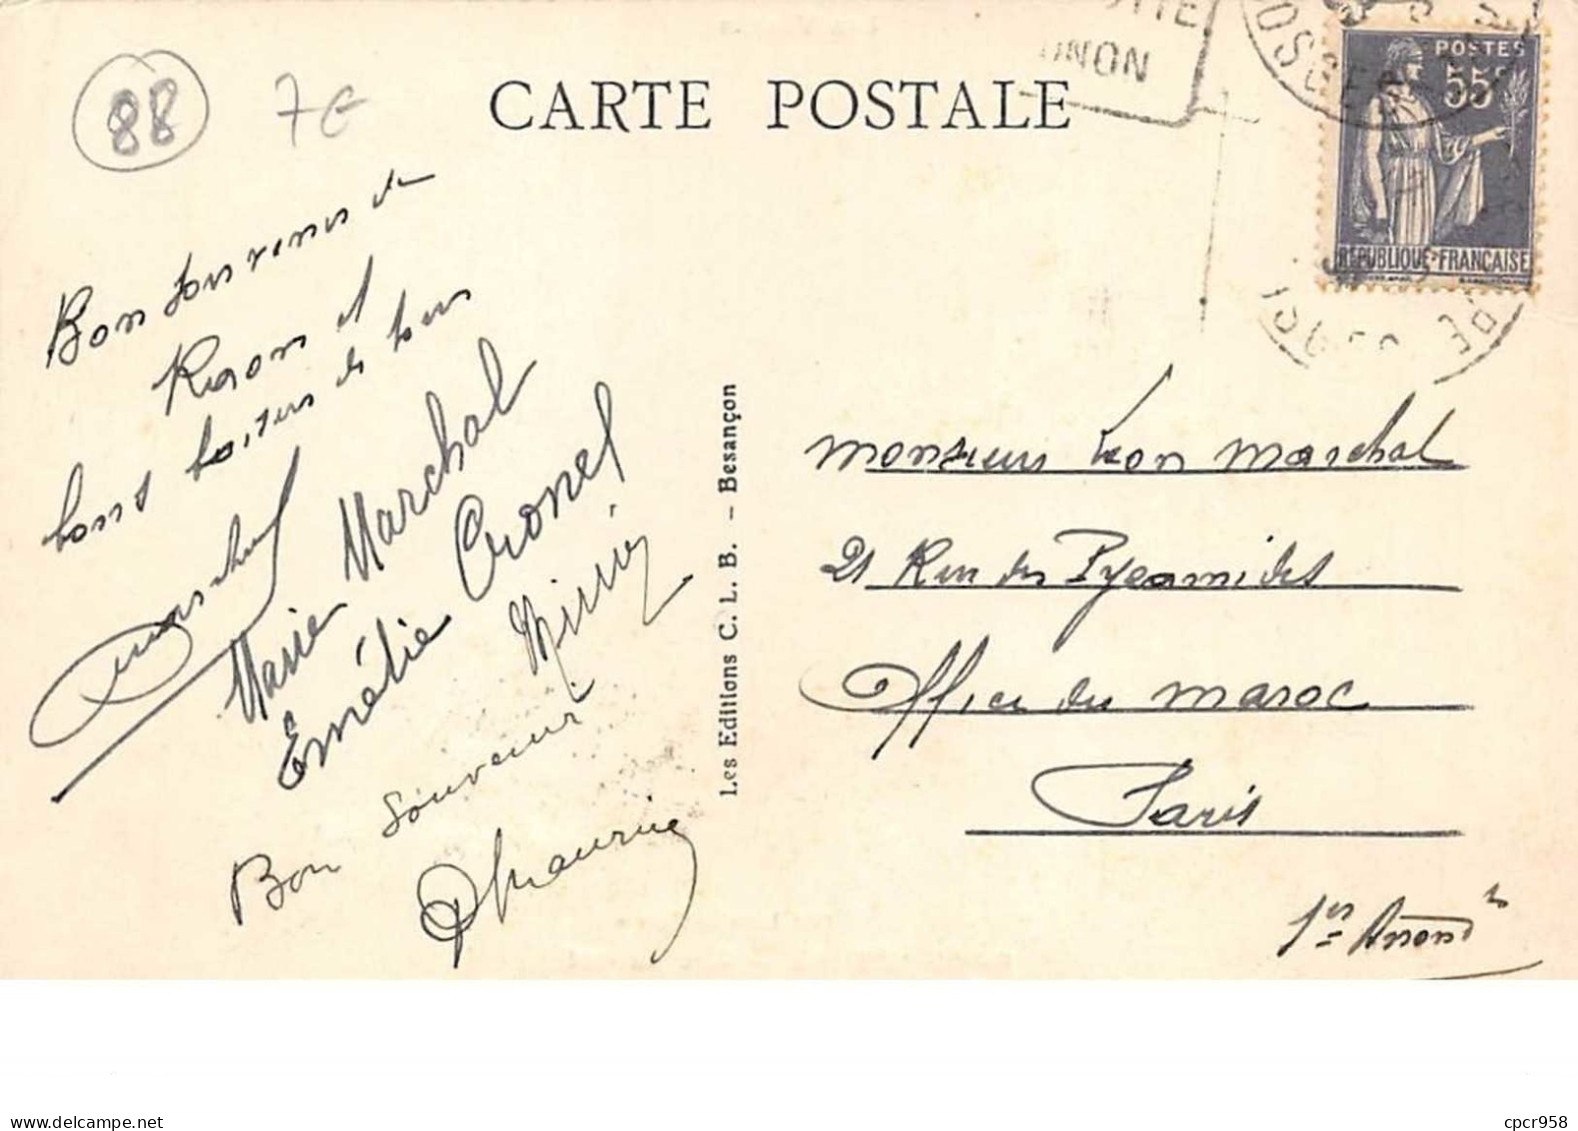 88
7€
CARTE POSTALE
NON
POSTES
55c
REPUBLIQUE-FRANÇAISE
VOSGES
Bon souvenir de
Raon et
bons baisers de tous
Marchal
Marie Marchal
Emélie Cronel
Mimi
Bon souvenir
Maurice
Les Editions C. L. B. - Besançon
Monsieur Léon Marchal
21 Rue des Pyramides
Office du Maroc
Paris
1er
delcampe.net
cpcr958